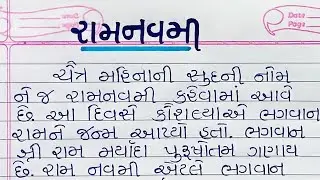 Date
Page
રામનવમી
ચૈત્ર મહિનાની સુદની નોમ
ને જ રામનવમી કહેવામાં આવે
છે. આ દિવસે કૌશલ્યાએ ભગવાન
રામને જન્મ આપ્યો હતો. ભગવાન
શ્રી રામ મર્યાદા પુરૂષોતમ ગણાય
છે. રામ નવમી એટલે ભગવાન